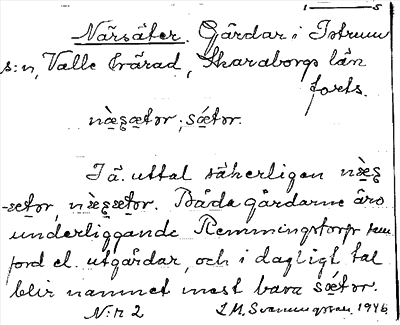 1 5
Närsäter. Gårdar i Istrum
s:n, Valle härad, Skaraborgs län
forts.
næʂætor; sǽtor.
I ä. uttal säkerligen næʂ
-ætor, næʂætor. Båda gårdarne äro
underliggande Remmingstorps
och i dagligt tal
blir namnet mest bara sǽtor.
N:r 2 1946.